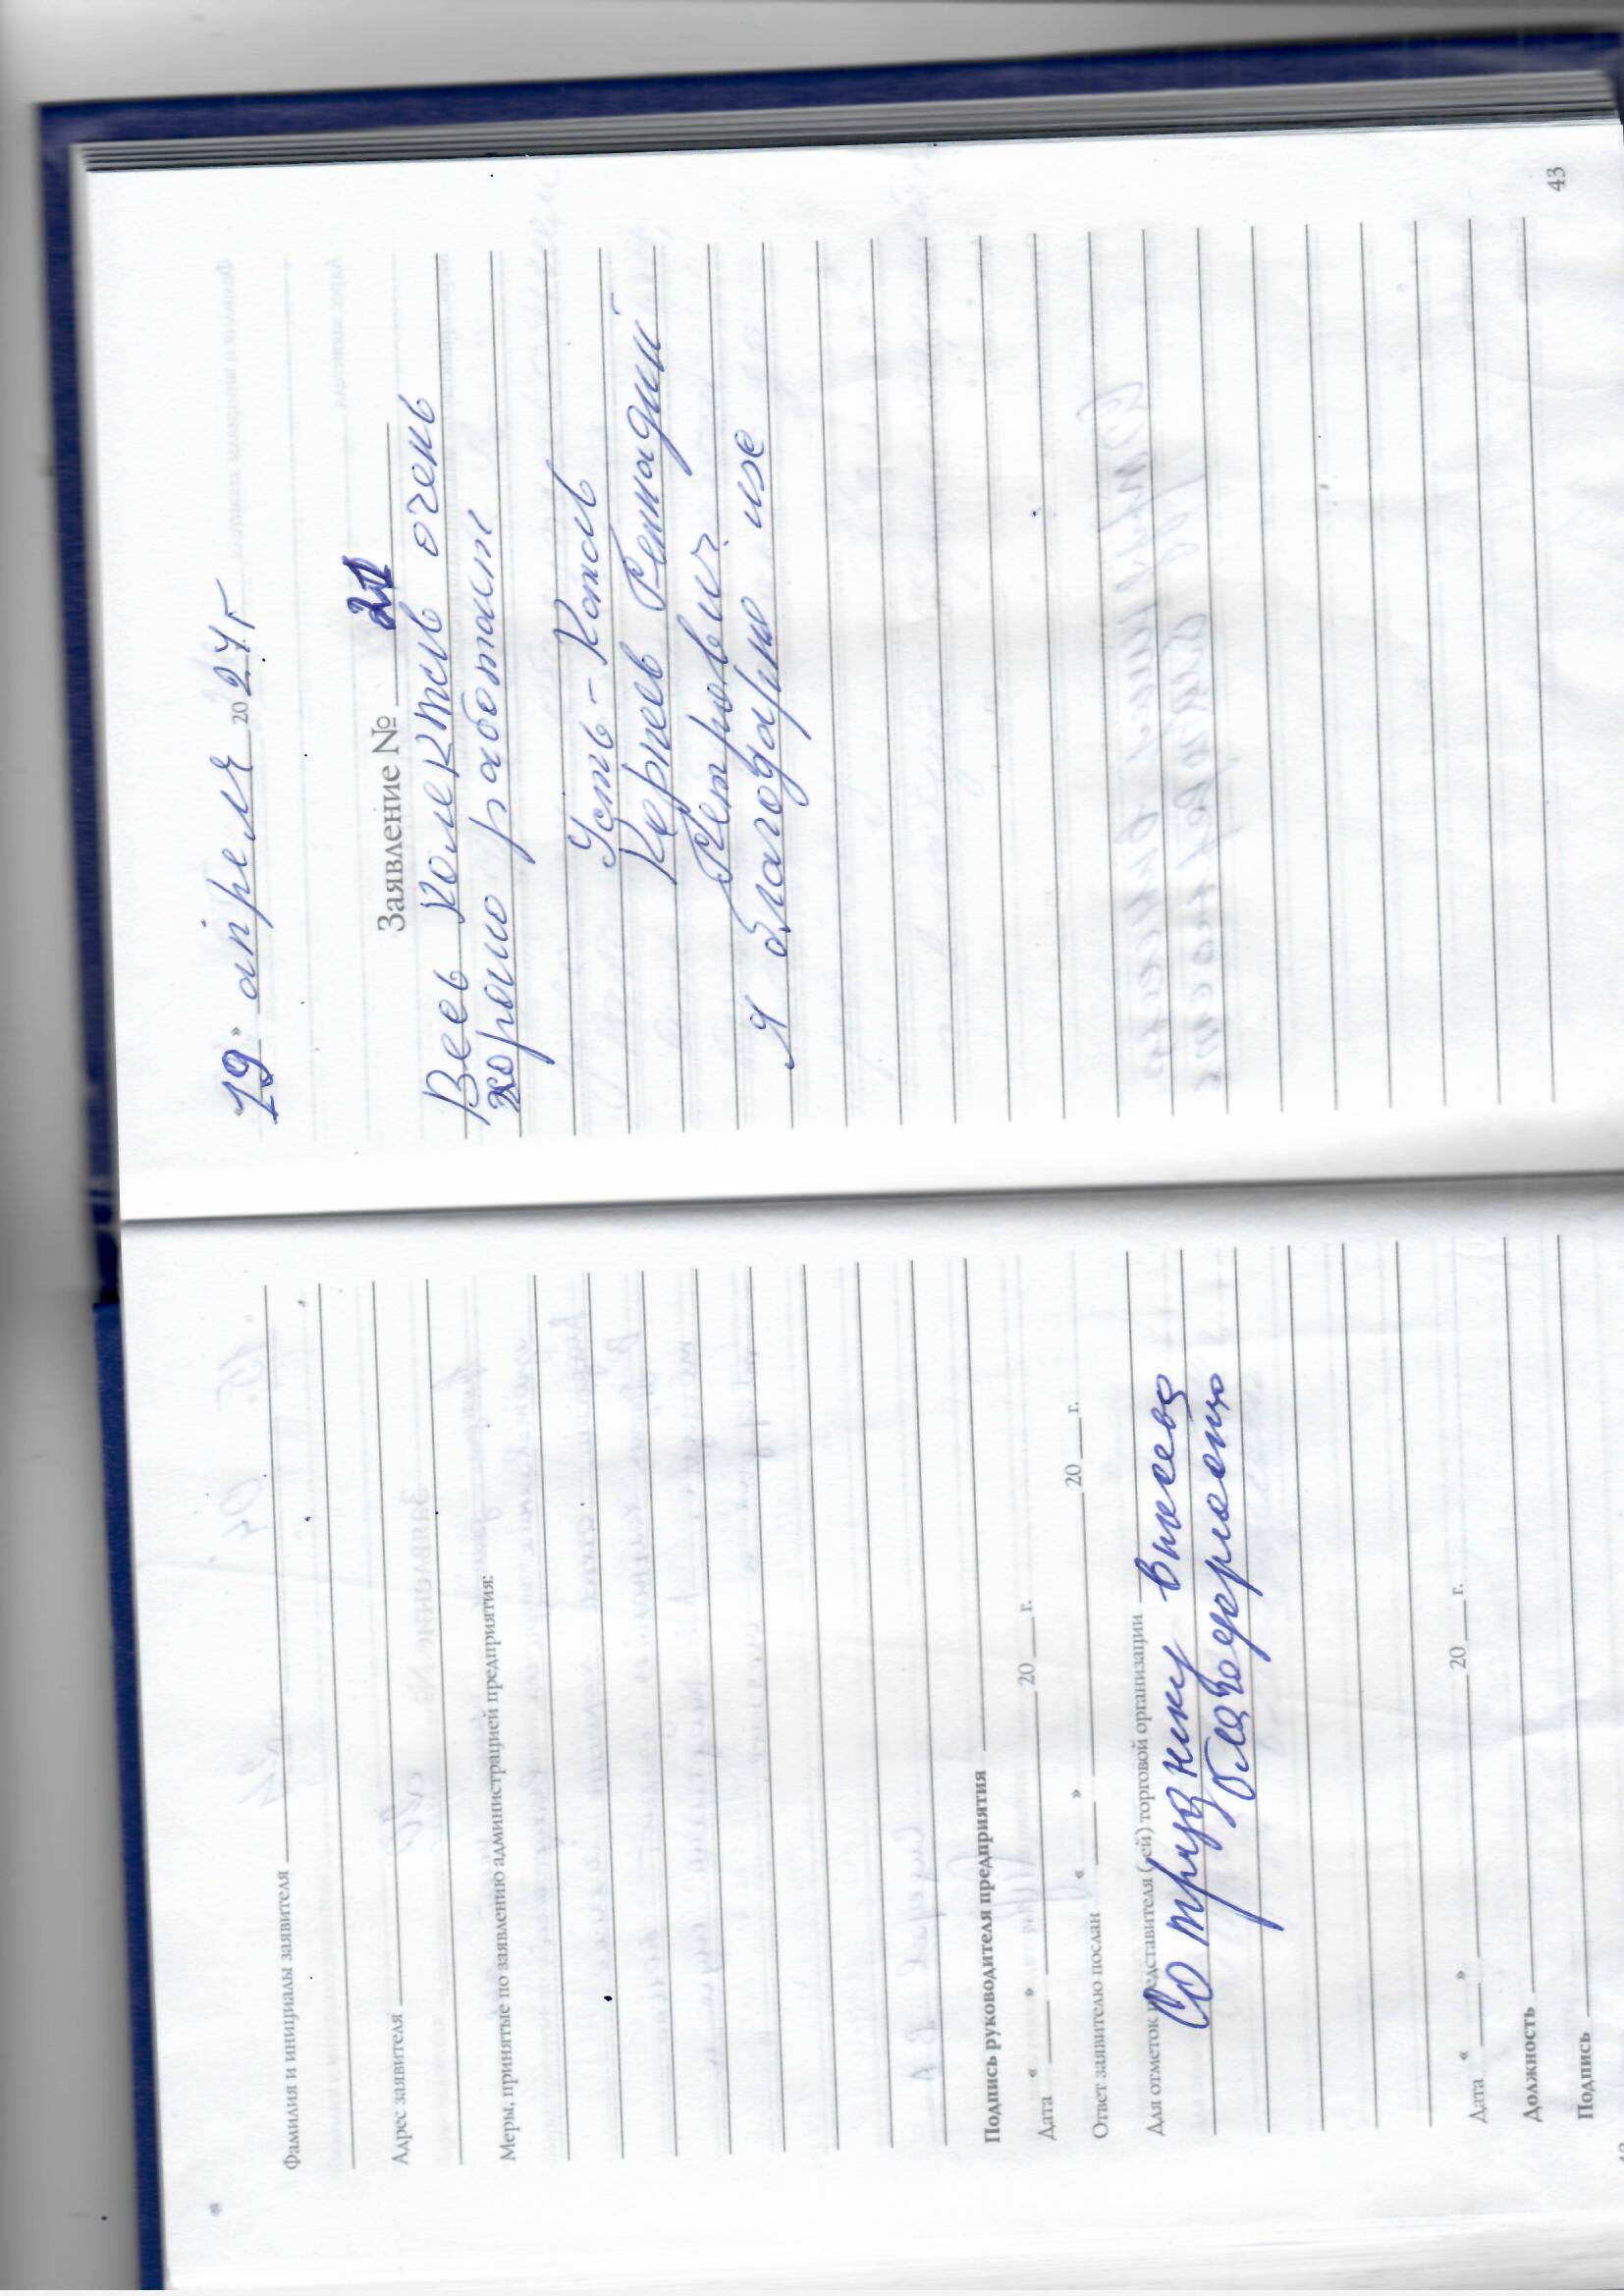 Фамилия и инициалы заявителя
Адрес заявителя
Меры, принятые по заявлению администрацией предприятия:
Подпись руководителя предприятия
Дата « » 20 г.
Ответ заявителю послан « » 20 г.
Для отметок представителя (-ей) торговой организации
Сотруднику внесена
благодарность
Дата « » 20 г.
Должность
Подпись
« 19 » апреля 2024г
Заявление № 21
Весь колектив очень
хорошо работает
Усть-Катав
Кернеев Геннадий
Петрович
я благодарю их
43